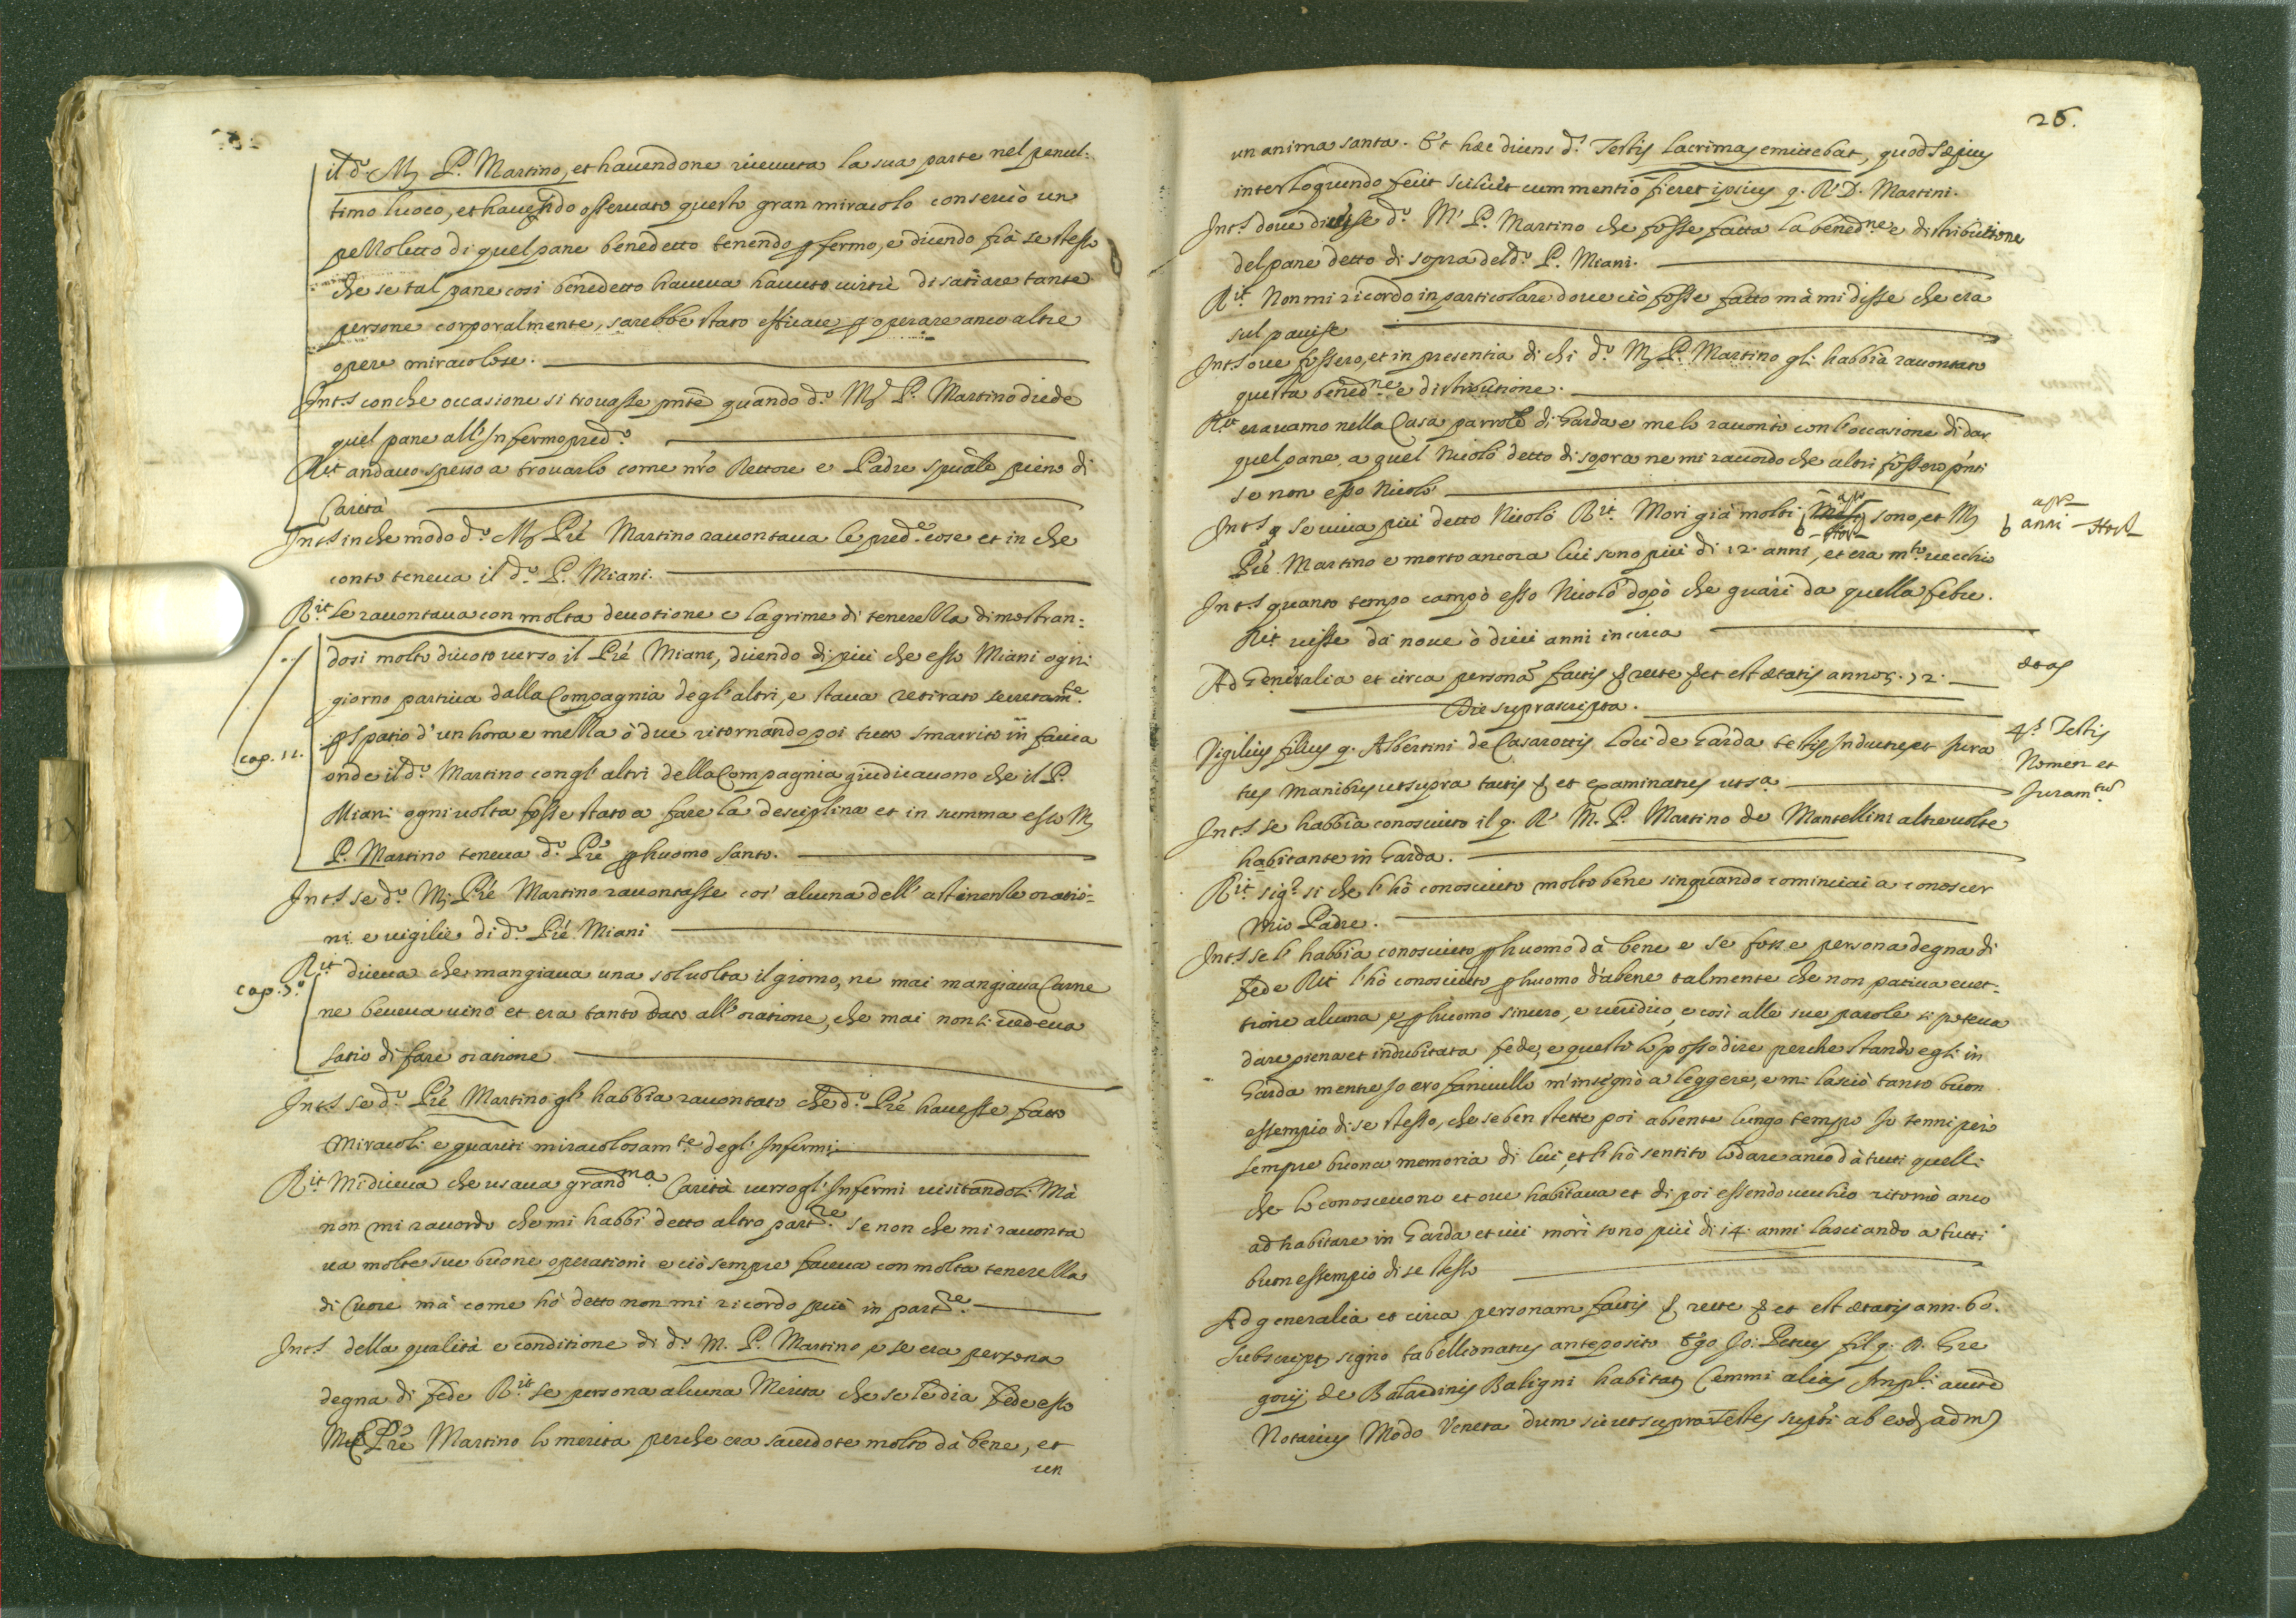 il d.º M. P. Martino, et havendone ricevuta la sua parte nel penul:
timo luoco, et havendo osservato questo gran miracolo conservò un
pezzoletto di quel pane benedetto tenendo p fermo, e dicendo frà se stesso
che se tal pane così benedetto haveva havuto virtù di satiare tante
persone corporalmente, sarebbe stato efficace p operare anco altre
opere miracolose.
Int.s con che occasione si trovasse pnte quando d.º M. P. Martino diede
quel pane all' Infermo pred.º
Rit andavo spesso a trovarlo come nro Rettore e Padre spūale pieno di
Carità
Int.s in che modo d.º M. Pré Martino racontava le pred.e cose et in che
conto teneva il d.º P. Miani.
R.it le racontava con molta devotione e lagrime di tenerezza dimostran:
dosi molto divoto verso il Pré Miani, dicendo di più che esso Miani ogni
giorno partiva dalla Compagnia degl' altri, e stava retirato secretam.te
p spatio d' un hora e mezza ò due ritornando poi tutto smarrito in faccia
cap. 11.
onde il d.º Martino con gl' altri della Compagnia giudicavono che il P.
Miani ogni volta fosse stato a fare la desciplina et in summa esso M.
P. Martino teneva d.º Pré p huomo santo.
Int.s se d.º M. Pré Martino racontasse cos' alcuna dell' astinenze oratio:
ni e vigilie di d.º Pré Miani
R.it diceva che mangiava una sol volta il giorno, ne mai mangiava Carne
cap. 5.º
ne beveva vino et era tanto dato all' oratione, che mai non si vedeva
satio di fare oratione
Int.s se d.º Pré Martino gl' habbia racontato che d.º Pré havesse fatto
Miracoli e guariti miracolosam.te degl' Infermi
R.it Mi diceva che usava grand.ma Carità verso gl' Infermi visitandoli Mà
non mi racordo che mi habbi detto altro part.re se non che mi raconta
va molte sue buone operationi e ciò sempre faceva con molta tenerezza
di Cuore mà come hò detto non mi ricordo più in part.re
Int.s della qualità e conditione di d.º M. P. Martino e se era persona
degna di fede R.it se persona alcuna Merita che se le dia fede esso
M. Pré Martino lo merita perche era sacerdote molto dà bene, et
un
26.
un anima santa. Et hæc dicens d.s Testis lacrimas emittebat, quod sæpius
interloquendo fecit scilicet cum mentio fieret ipsius q. R. D. Martini.
Int.s dove dicesse d.º M. P. Martino che fosse fatta la bened.ne e distributione
del pane detto di sopra del d.º P. Miani.
R.it Non mi ricordo in particolare dove ciò fosse fatto mà mi disse che era
sul pavese
Int.s ove fossero, et in presentia di chi d.º M. P. Martino gli habbia racontato
questa bened.ne e distributione.
R.it eravamo nella Casa parrole di Garda e me lo racontò con l' occasione di dar
quel pane, a quel Nicolò detto di sopra ne mi racordo che altri fossero pnti
se non esso Nicolò
Int.s q se viva più detto Nicolò R.it Morì già molti sono, et M.
anni
Pré Martino e morto ancora lui sono più di 12 anni, et era m.to vecchio
Int.s quanto tempo campò esso Nicolò dopò che guarì da quella febre.
R.it visse dà nove ò dieci anni incirca
Ad Generalia et circa personā factis & recte & et est ætatis annor. 72.
ætas
Die suprascripta.
4.s Testis
Vigilius filius q. Albertini de Casarottis loci de Garda testis Inductus et Jura
Nomen et
tus manibus ut supra tactis & et examinatus ut s.a
Juram.tū
Int.s se habbia conosciuto il q. R. M. P. Martino de Mantellini altre volte
habitante in Garda.
R.it sig.r si che l' hò conosciuto molto bene sin quando cominciai a conoscer
Mio Padre.
Int.s se l' habbia conosciuto p huomo dà bene e se fosse persona degna di
fede Rit l' hò conosciuto p huomo d'abene talmente che non pativa ecet:
tione alcuna, e p huomo sincero, e veridico, e così alle sue parole si poteva
dare piena et indubitata fede, e questo lo posso dire perche stando egli in
Garda mentre Io ero fanciullo m' insegnò a leggere, e mi lasciò tanto buon
essempio di se stesso, che se ben stette poi absente lungo tempo Io tenni però
sempre buona memoria di lui, et l' hò sentito lodare anco dà tutti quelli
che lo conoscevono et ove habitava et di poi essendo vecchio ritornò anco
ad habitare in Garda et ivi morì sono più di 14 anni lasciando a tutti
buon essempio di se stesso
Ad generalia et circa personam factis & recte & et est ætatis ann. 60.
Subscript. signo tabellionatus anteposito Ego Jo: Petrus fil. q. D. Gre
gorij de Balardinis Baligni habitat. Cemmi alias Impli aucte
Notarius Modo Veneta dum sic ut supra Testes supti ab eod. adm